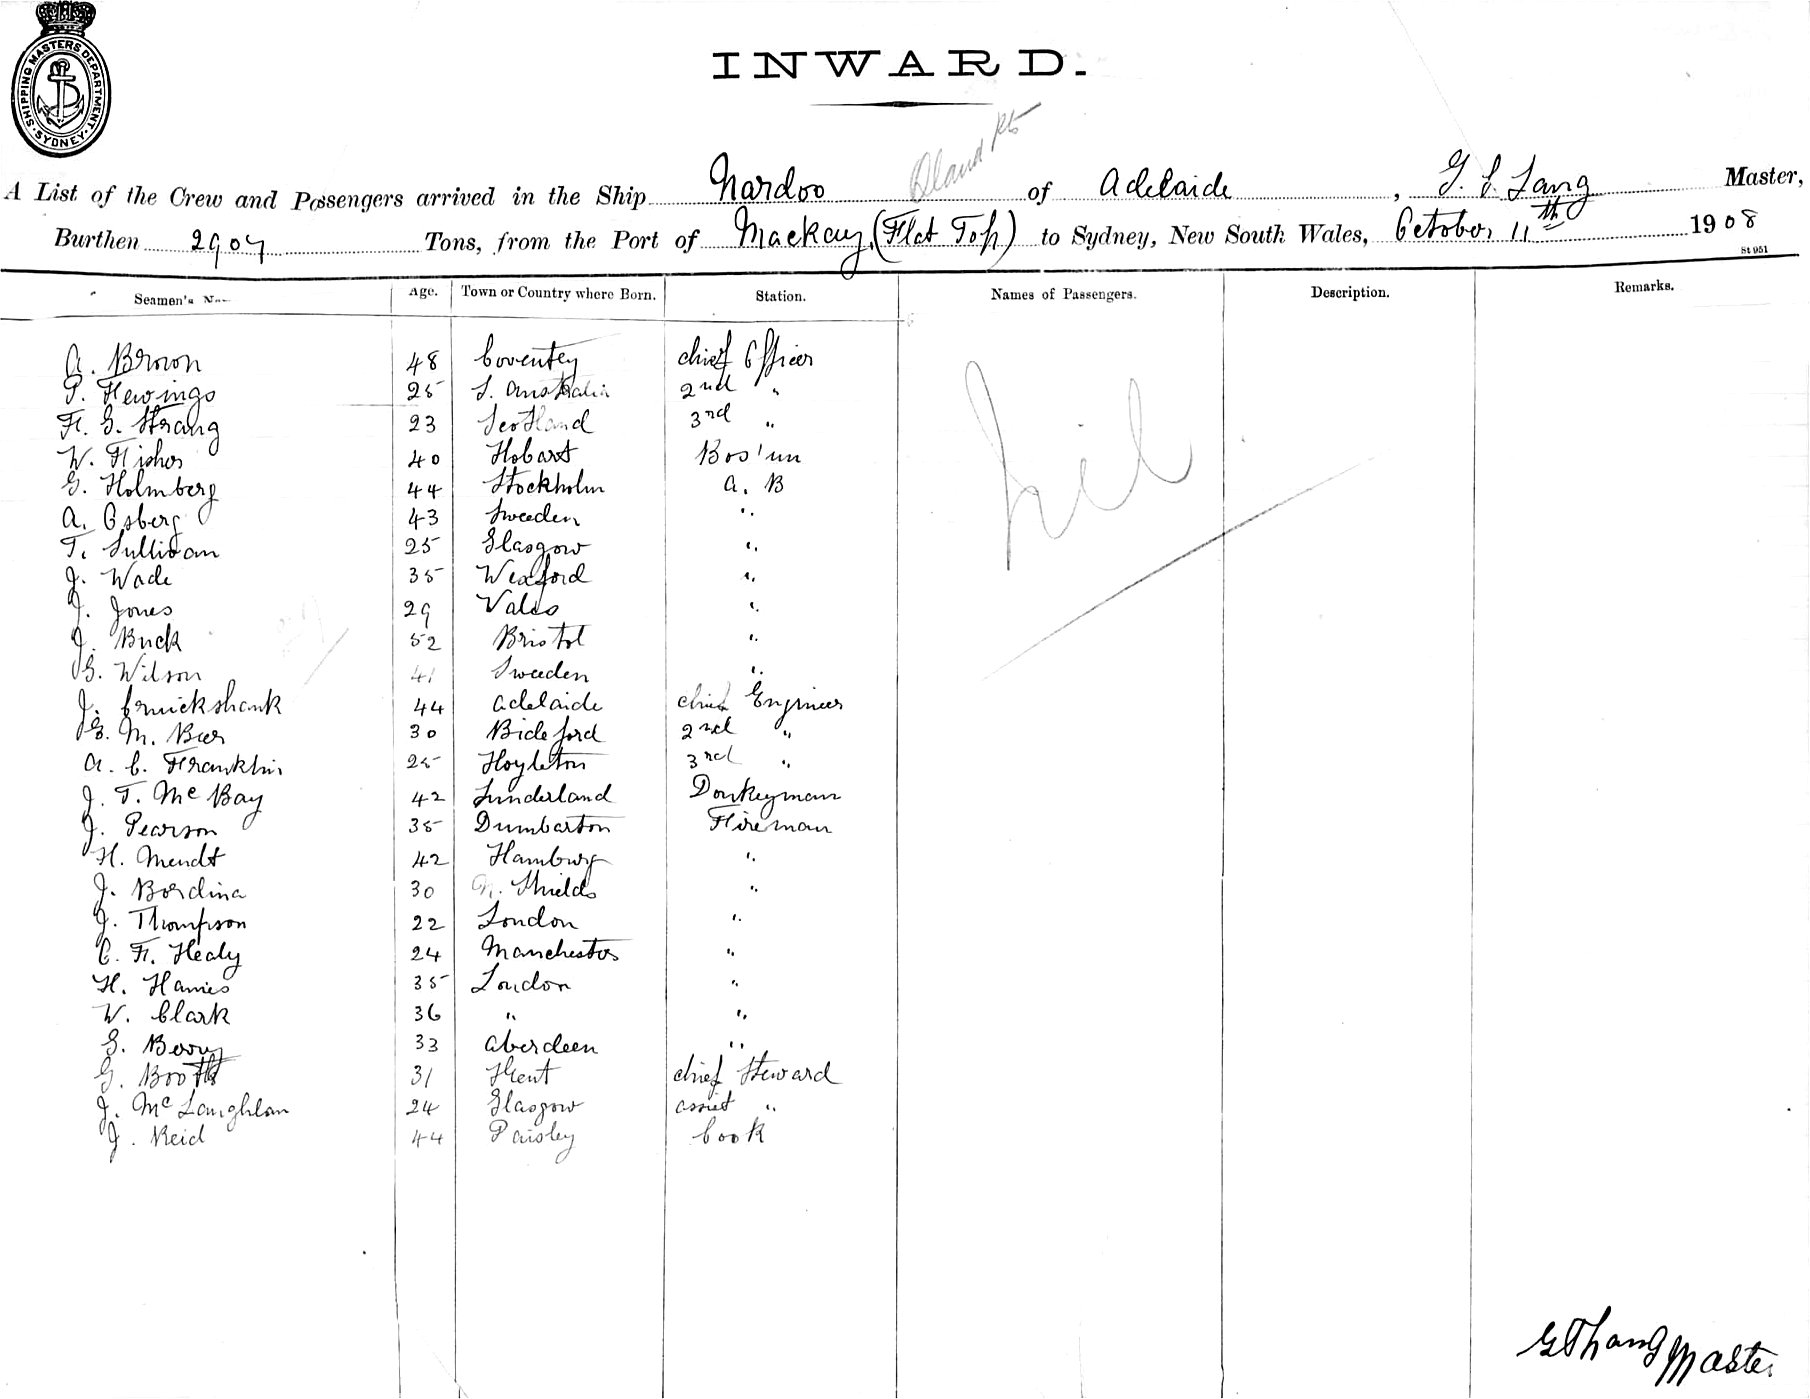 SHIPPING MASTERS DEPARTMENT
SYDNEY
INWARD.
Qland Pts
A List of the Crew and Passengers arrived in the Ship Nardoo of Adelaide, G. S. Lang Master,
Burthen 2907 Tons, from the Port of Mackay, (Flat Top) to Sydney, New South Wales, October 11th 1908
St 951
Seamen's Age. Town or Country where Born. Station. Names of Passengers. Description. Remarks.
nil
A. Brown 48 Coventry chief Officer
P. Hewings 25 S. Australia 2nd "
H. G. Strang 23 Scotland 3rd "
W. Fisher 40 Hobart Bos'un
G. Holmberg 44 Stockholm A. B
A. Osberg 43 Sweeden "
T. Sullivan 25 Glasgow "
J. Wade 35 Wexford "
J. Jones 29 Wales "
J. Buck 52 Bristol "
G. Wilson 41 Sweeden "
J. Cruickshank 44 Adelaide chief Engineer
G. M. Beer 30 Bideford 2nd "
A. C. Franklin 25 Hoyleton 3rd "
J. T. McBay 42 Sunderland Donkeyman
J. Pearson 35 Dumbarton Fireman
H. Mendt 42 Hamburg "
J. Bordina 30 N. Shields "
J. Thompson 22 London "
C. F. Healy 24 Manchester "
H. Harries 35 London "
W. Clark 36 " "
G. Berry 33 Aberdeen "
G. Booth 31 Kent chief Steward
J. McLaughlan 24 Glasgow assist "
J. Reid 44 Paisley Cook
Lang Master